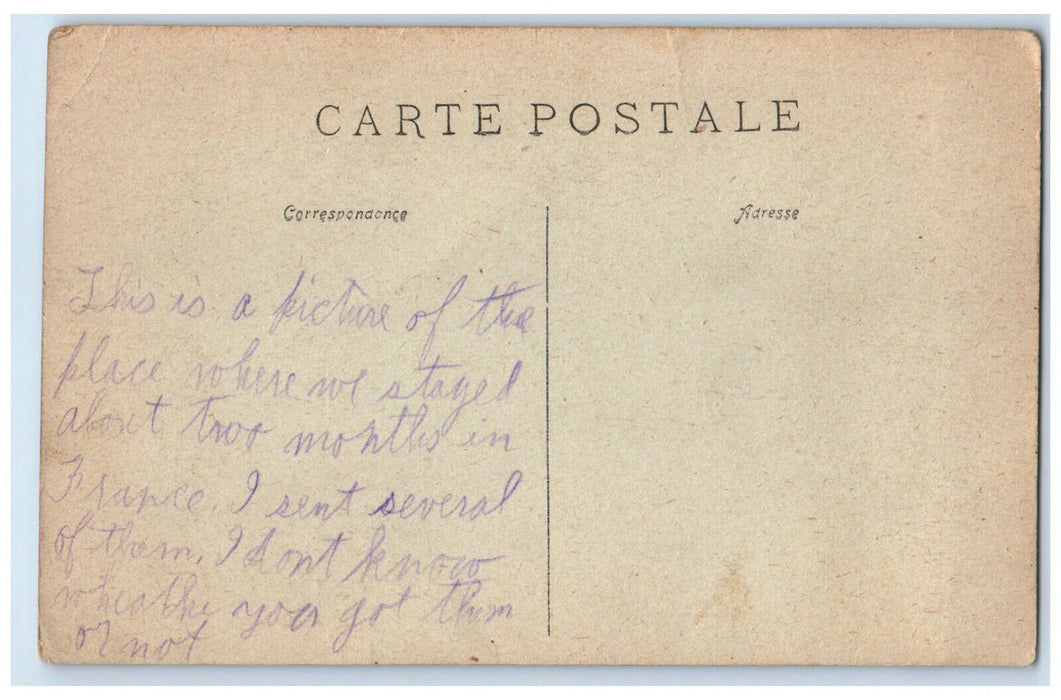 CARTE POSTALE
Correspondance
Adresse
This is a picture of the
place where we stayed
about two months in
France. I sent several
of them. I dont know
wheathe you got them
or not